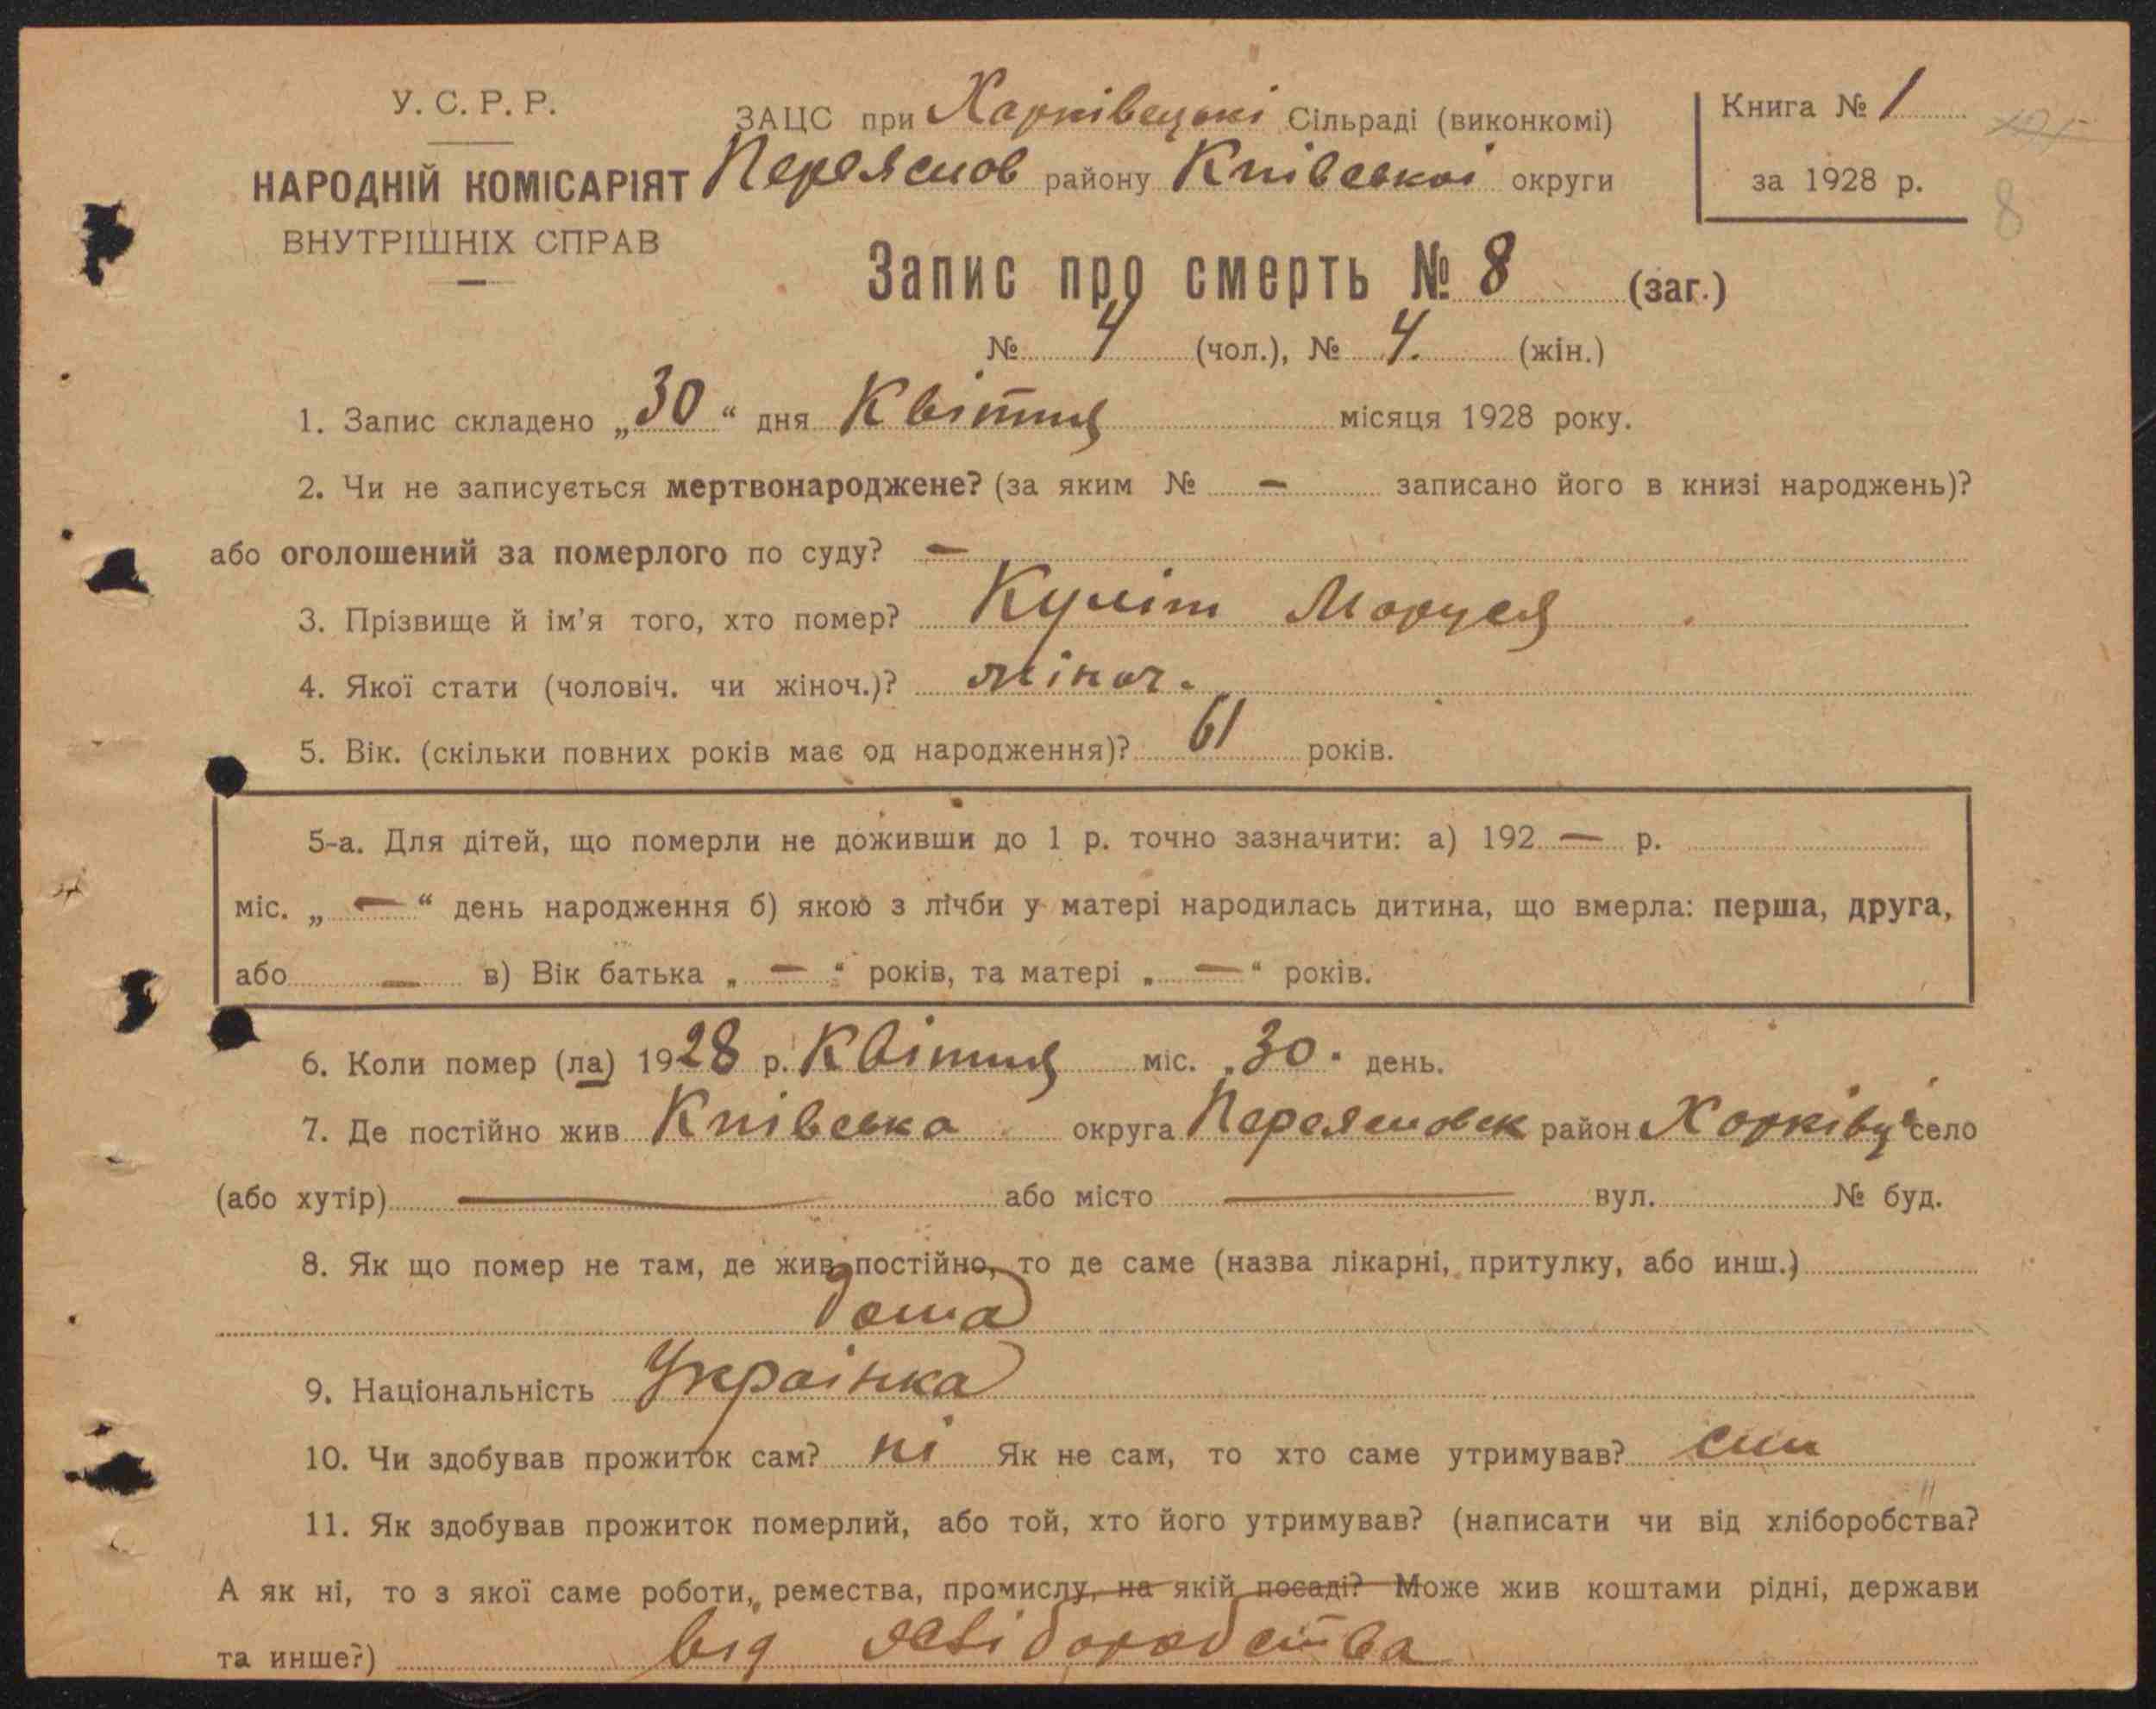 У. С. Р. Р.
НАРОДНІЙ КОМІСАРІЯТ
ВНУТРІШНІХ СПРАВ
ЗАЦС при Харківецькі Сільраді (виконкомі)
Переяслов району Київської округи
Книга № 1
за 1928 р.
8
Запис про смерть № 8 (заг.)
№ 4 (чол.), № 4. (жін.)
1. Запис складено „30“ дня Квітня місяця 1928 року.
2. Чи не записується мертвонароджене? (за яким № — записано його в книзі народжень)?
або оголошений за померлого по суду? —
3. Прізвище й ім'я того, хто помер? Маруся
4. Якої стати (чоловіч. чи жіноч.)? жіноч.
5. Вік. (скільки повних років має од народження)? 61 років.
5-а. Для дітей, що померли не доживши до 1 р. точно зазначити: а) 192 — р.
міс. „ — “ день народження б) якою з лічби у матері народилась дитина, що вмерла: перша, друга,
або — в) Вік батька „ — “ років, та матері „ — “ років.
6. Коли помер (ла) 1928 р. Квітня міс. „30“ день.
7. Де постійно жив Київська округа Переясловск район Харківці село
(або хутір) — або місто — вул. № буд.
8. Як що помер не там, де жив постійно, то де саме (назва лікарні, притулку, або инш.)
дома
9. Національність Українка
10. Чи здобував прожиток сам? ні Як не сам, то хто саме утримував? син
11. Як здобував прожиток померлий, або той, хто його утримував? (написати чи від хліборобства?
А як ні, то з якої саме роботи, ремества, промислу, на якій посаді? Може жив коштами рідні, держави
та инше?) від хліборобства